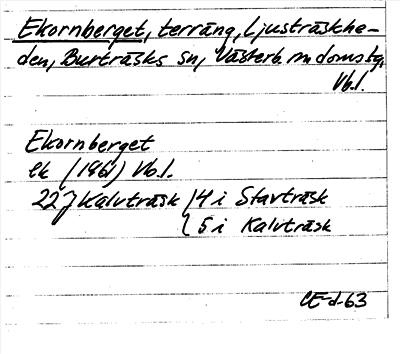 Ekornberget, terräng, Ljusträskhe-
den, Burträsks sn, Västerb. n. domstg,
Vb.l.
Ekornberget
ek (1961) Vb.l.
22J Kalvträsk { 4 i Stavträsk
5 i Kalvträsk
CE-d-63